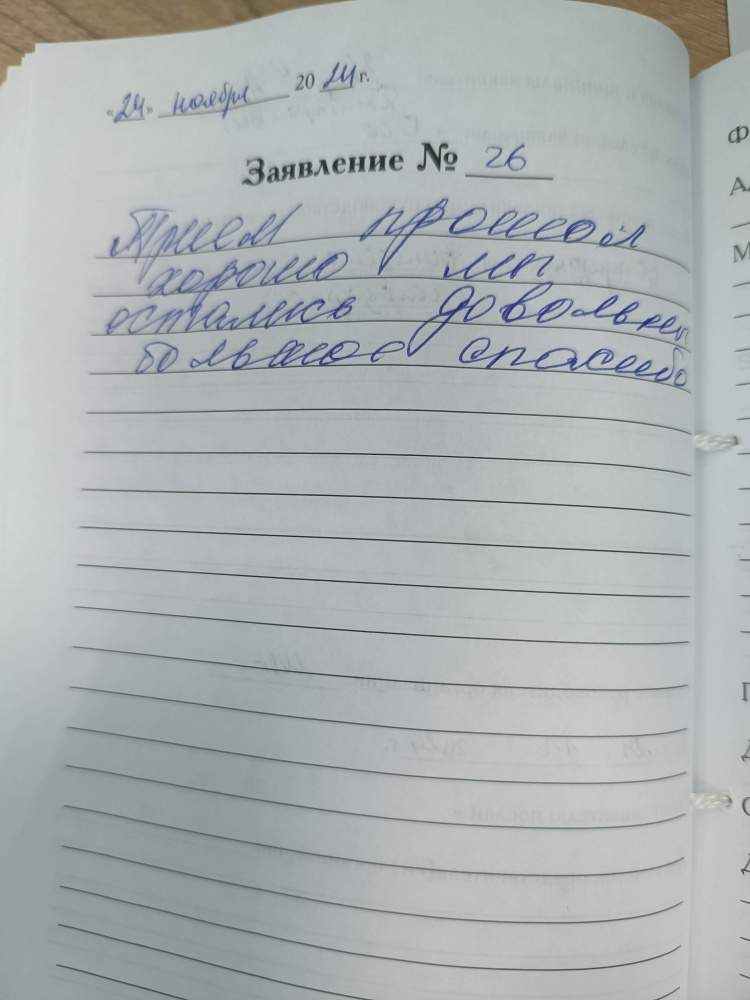 «24» ноября 2024 г.
Заявление № 26
Прием прошол
хорошо мы
остались довольны
большое спасибо
Ф
М